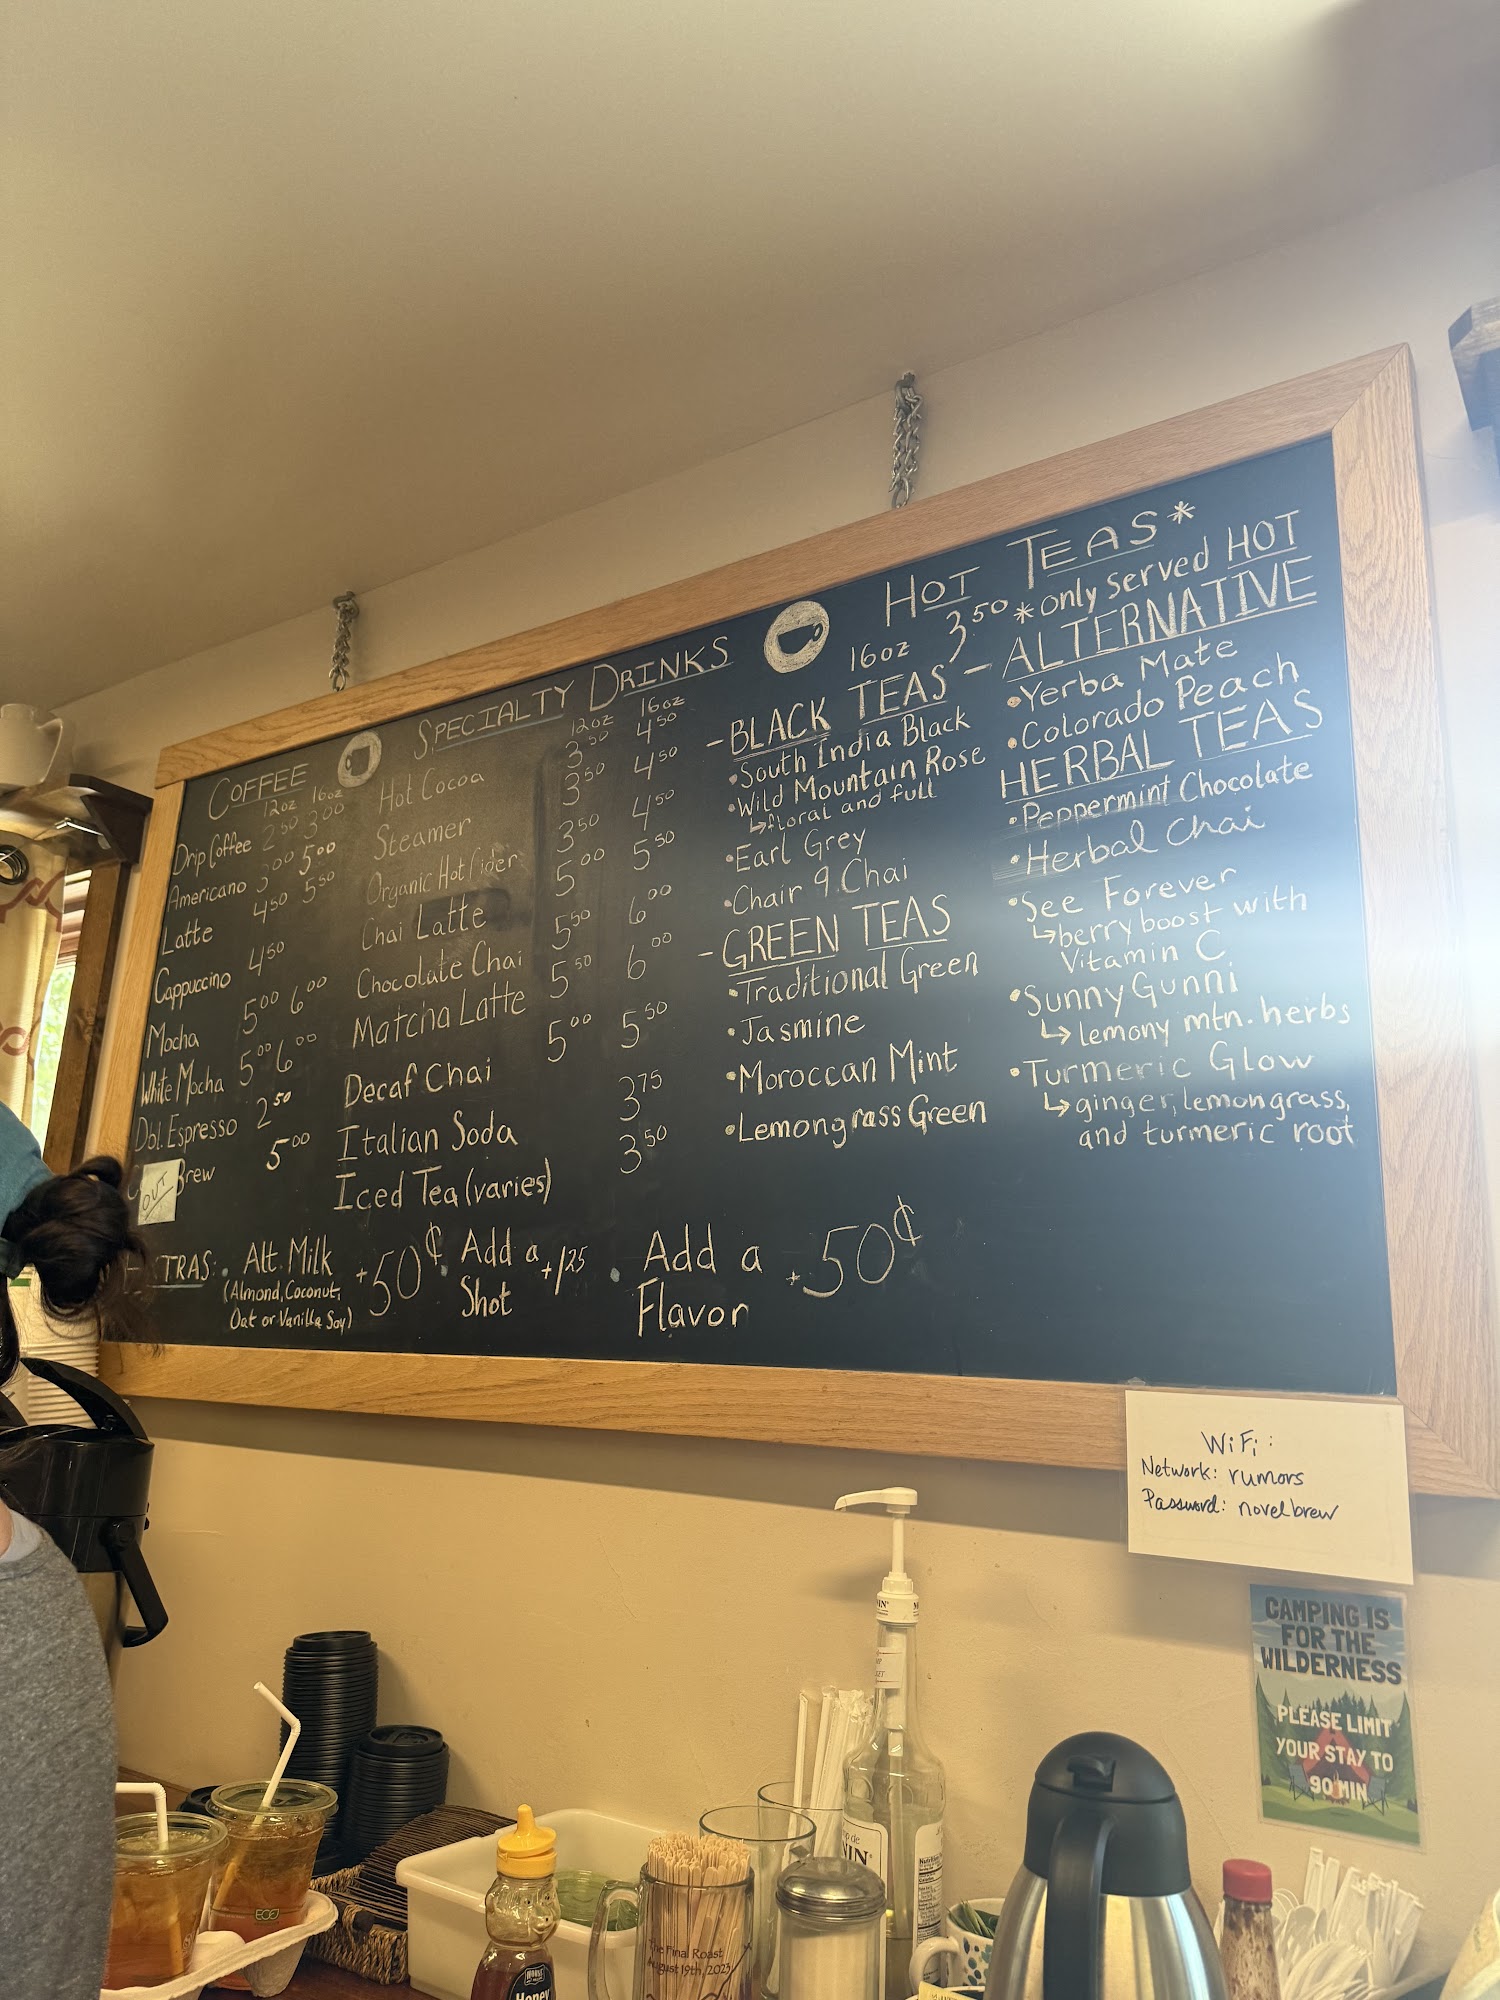 COFFEE
12oz 16oz
Drip Coffee 2.50 3.00
Americano 3.00 5.00
Latte 4.50 5.50
Cappuccino 4.50
Mocha 5.00 6.00
White Mocha 5.00 6.00
Dbl. Espresso 2.50
Brew 5.00
OUT
SPECIALTY DRINKS
12oz 16oz
Hot Cocoa 3.50 4.50
Steamer 3.50 4.50
Organic Hot Cider 3.50 4.50
Chai Latte 5.00 5.50
Chocolate Chai 5.50 6.00
Matcha Latte 5.50 6.00
Decaf Chai 5.00 5.50
Italian Soda 3.75
Iced Tea (varies) 3.50
HOT TEAS*
16oz 3.50 *only served HOT
- BLACK TEAS -
•South India Black
•Wild Mountain Rose
↳floral and full
•Earl Grey
•Chair 9 Chai
- GREEN TEAS
•Traditional Green
•Jasmine
•Moroccan Mint
•Lemongrass Green
ALTERNATIVE
•Yerba Mate
•Colorado Peach
HERBAL TEAS
•Peppermint Chocolate
•Herbal Chai
•See Forever
↳berry boost with
Vitamin C
•Sunny Gunni
↳lemony mtn. herbs
•Turmeric Glow
↳ginger, lemongrass,
and turmeric root
TRAS: • Alt. Milk +50¢
(Almond, Coconut,
Oat or Vanilla Soy)
• Add a
Shot +1.25
• Add a
Flavor +50¢
WiFi:
Network: rumors
Password: novelbrew
CAMPING IS
FOR THE
WILDERNESS
PLEASE LIMIT
YOUR STAY TO
90 MIN
The Final Roast
August 19th, 2023
ECO
NIN
Honey